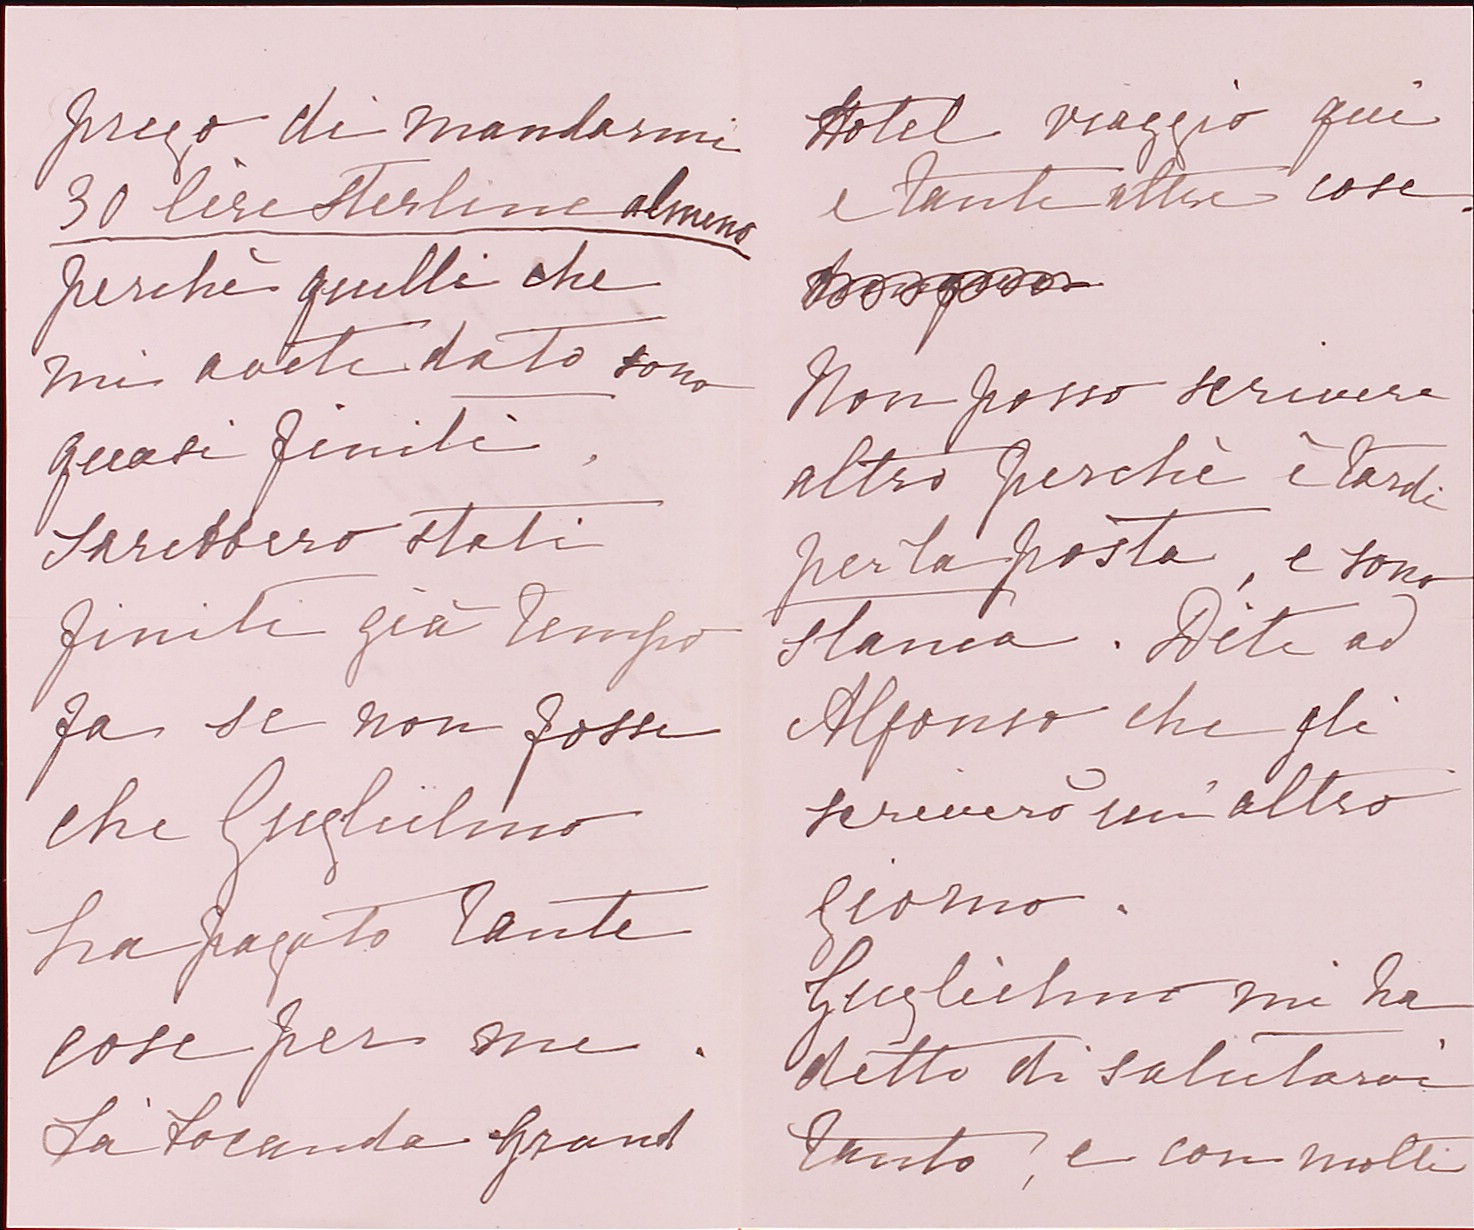 prego di mandarmi
30 lire sterline almeno
perchè quelli che
mi avete dato sono
quasi finiti,
Sarebbero stati
finiti già tempo
fa se non fosse
che Guglielmo
ha pagato tante
cose per me.
La Locanda Grand
Hotel viaggio qui
e tante altre cose.
Non posso scrivere
altro perchè è tardi
per la posta, e sono
stanca. Dite ad
Alfonso che gli
scriverò un'altro
giorno.
Guglielmo mi ha
detto di salutarvi
tanto, e con molti